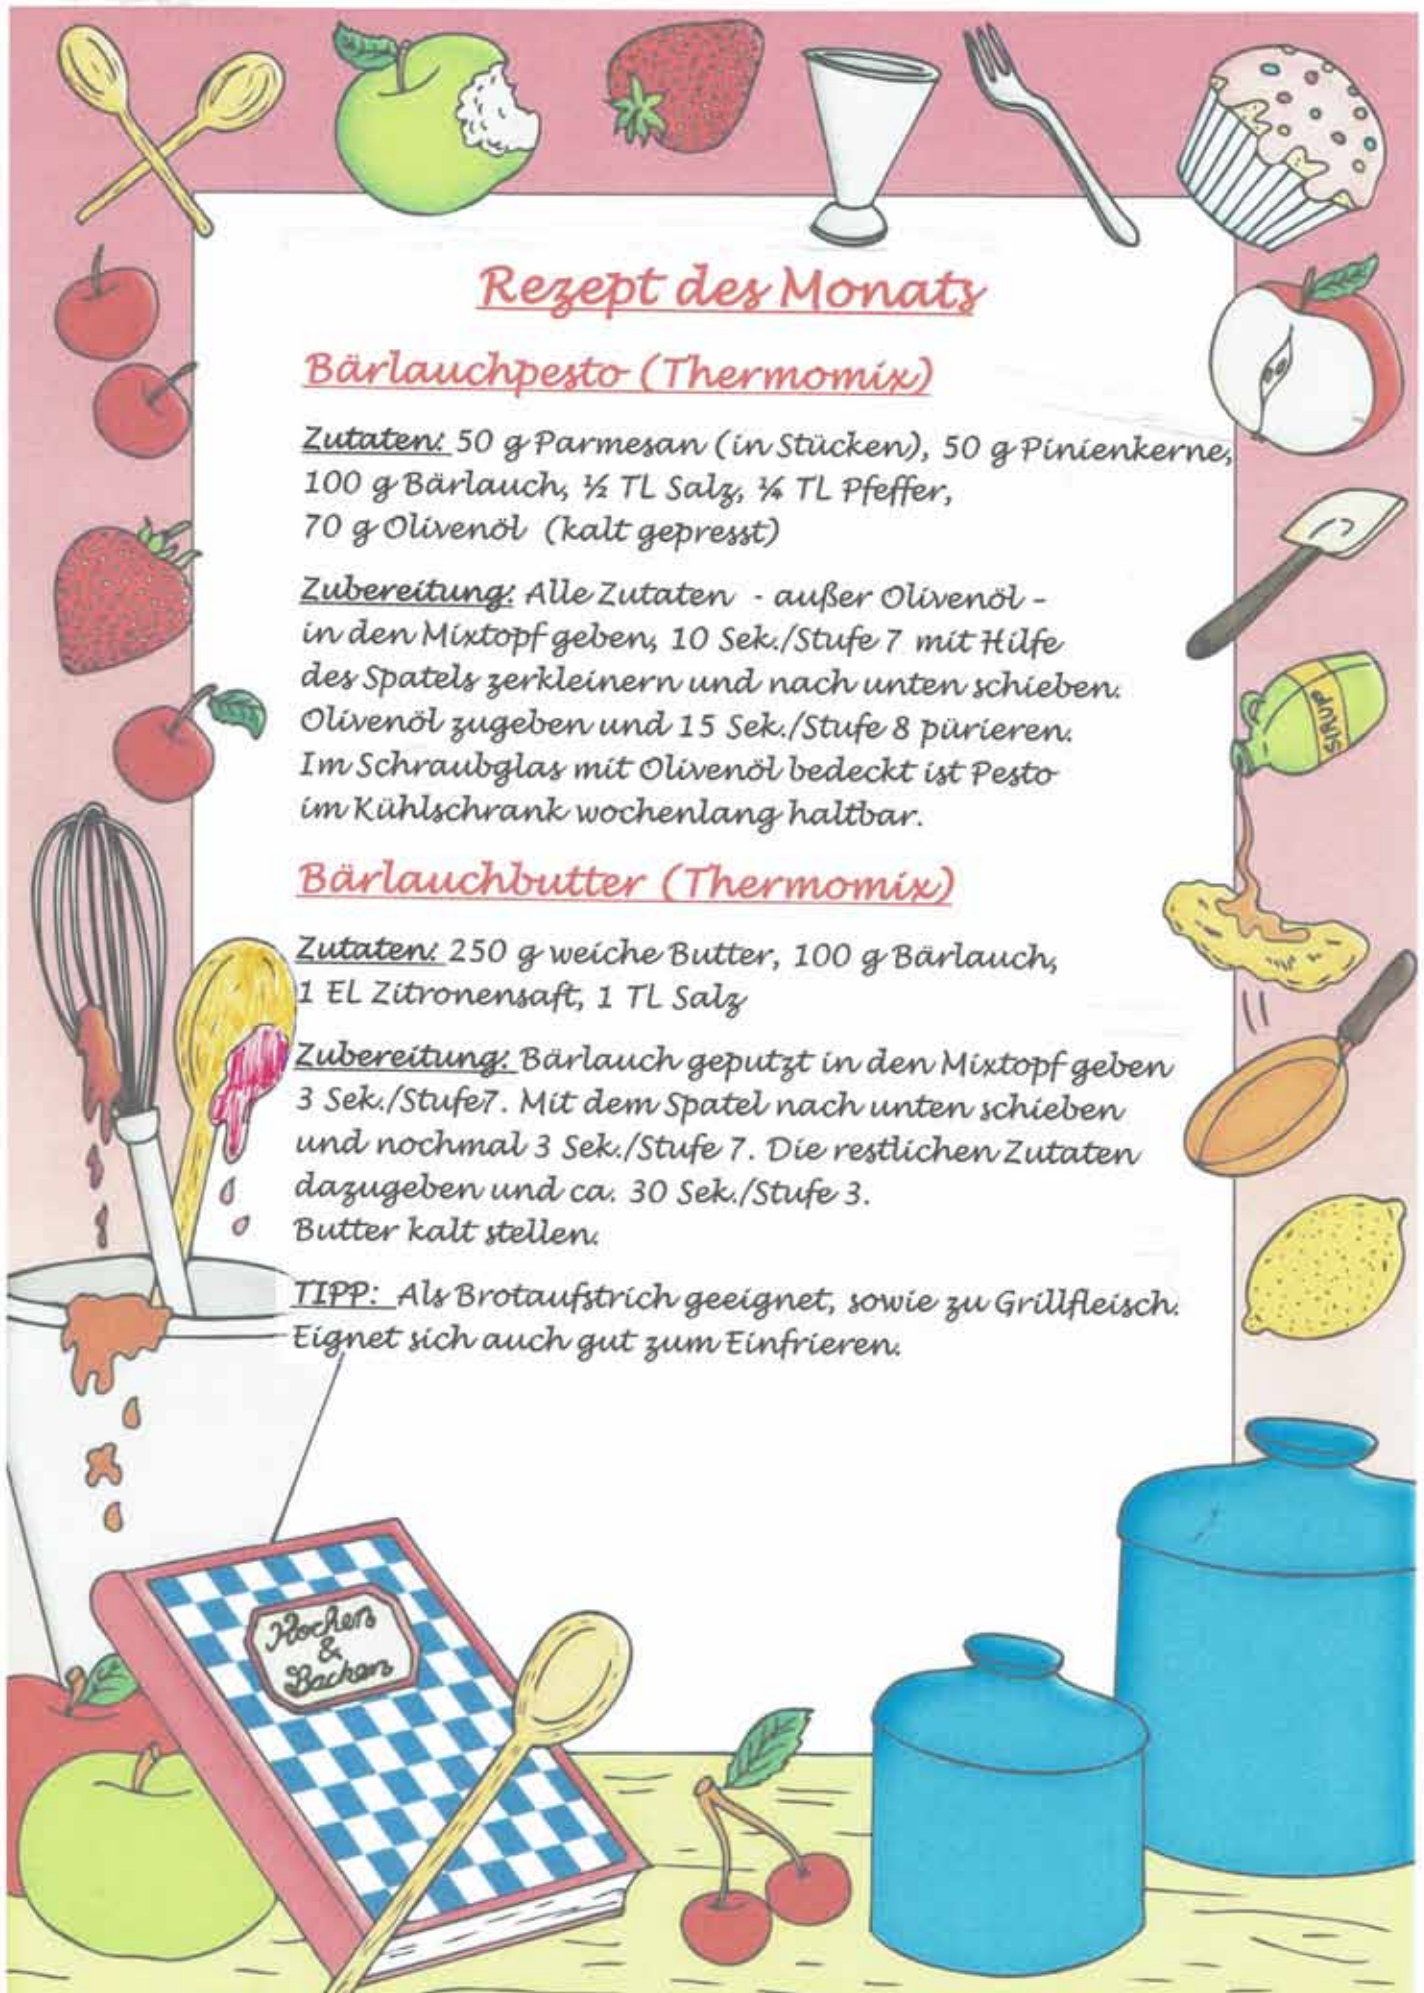 Rezept des Monats
Bärlauchpesto (Thermomix)
Zutaten: 50 g Parmesan (in Stücken), 50 g Pinienkerne,
100 g Bärlauch, ½ TL Salz, ¼ TL Pfeffer,
70 g Olivenöl (kalt gepresst)
Zubereitung: Alle Zutaten - außer Olivenöl -
in den Mixtopf geben, 10 Sek./Stufe 7 mit Hilfe
des Spatels zerkleinern und nach unten schieben.
Olivenöl zugeben und 15 Sek./Stufe 8 pürieren.
Im Schraubglas mit Olivenöl bedeckt ist Pesto
im Kühlschrank wochenlang haltbar.
SIRUP
Bärlauchbutter (Thermomix)
Zutaten: 250 g weiche Butter, 100 g Bärlauch,
1 EL Zitronensaft, 1 TL Salz
Zubereitung: Bärlauch geputzt in den Mixtopf geben
3 Sek./Stufe7. Mit dem Spatel nach unten schieben
und nochmal 3 Sek./Stufe 7. Die restlichen Zutaten
dazugeben und ca. 30 Sek./Stufe 3.
Butter kalt stellen.
TIPP: Als Brotaufstrich geeignet, sowie zu Grillfleisch.
Eignet sich auch gut zum Einfrieren.
Kochen
&
Backen